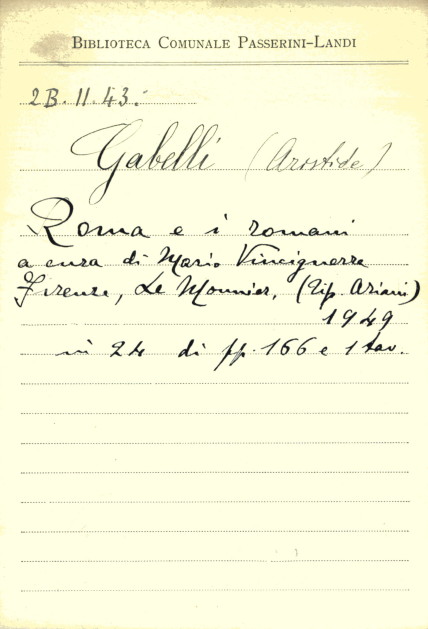 BIBLIOTECA COMUNALE PASSERINI-LANDI
2B.II.43.
Gabelli (Aristide)
Roma e i romani
a cura di Mario Vinciguerra
Firenze, Le Monnier, (Tip. Ariani)
1949
in 24 di pp. 166 e 1 tav.